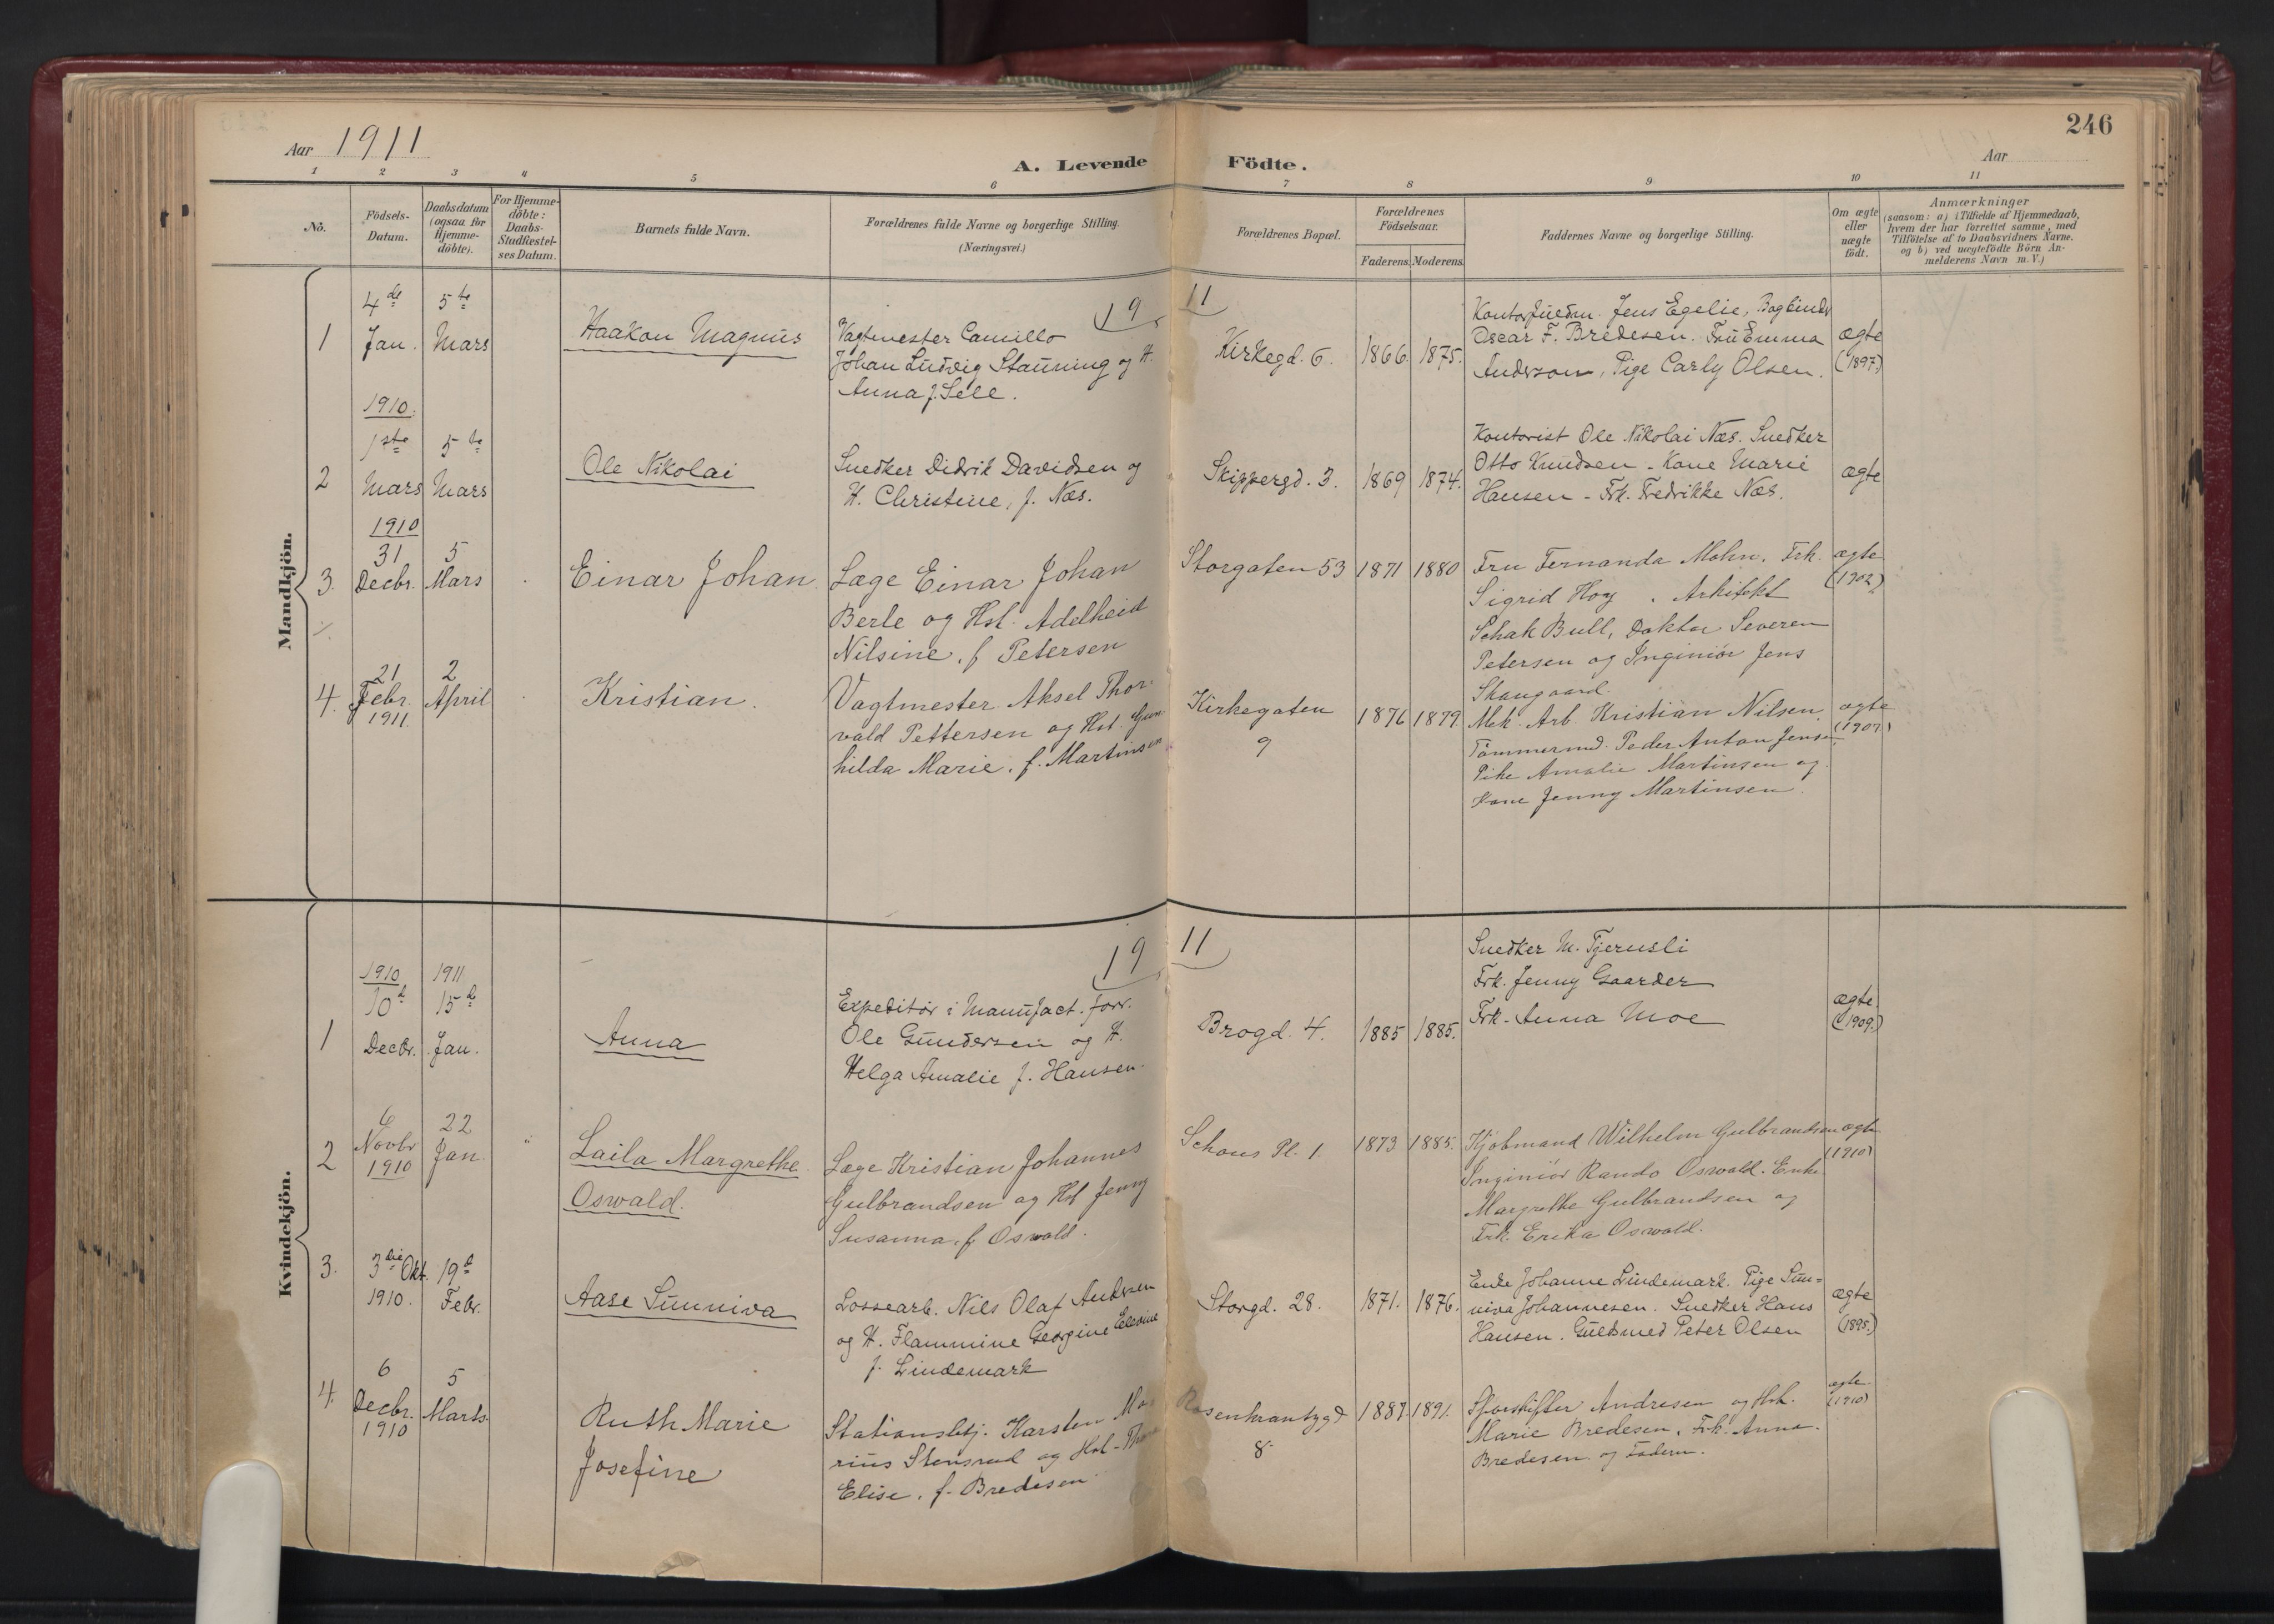 Aar 1911
A. Levende Födte.
246
Aar
1 2 3 4 5 6 7 8 9 10 11
No.
Födsels-
Datum.
Daabsdatum
(ogsaa for
Hjemme-
döbte).
For Hjemme-
döbte:
Daabs-
Stadfæstel-
ses Datum.
Barnets fulde Navn.
Forældrenes fulde Navne og borgerlige Stilling.
(Næringsvei.)
Forældrenes Bopæl.
Forældrenes
Födselsaar.
Faderens. Moderens.
Faddernes Navne og borgerlige Stilling.
Om ægte
eller
uægte
födt.
Anmærkninger
(saasom: a) i Tilfælde af Hjemmedaab,
hvem der har forrettet samme, med
Tilföielse af to Daabsvidners Navne.
og b) ved uægtefödte Börn An-
melderens Navn m. V.)
Mandkjön.
19 11
1
4de
Jan.
5te
Mars
Haakon Magnus
Vagtmester Camillo
Johan Ludvig Stauning og H.
Anna f. Sele.
Kirkegd. 6.
1866. 1875.
Jens Egelie, Bogbinder
Oscar F. Bredesen. Fru Emma
Anderson, Pige Carly Olsen.
ægte
(1897.)
2
1910.
1ste
Mars
5te
Mars
Ole Nikolai
Snedker Didrik Davidsen og
H. Christine, f. Næs.
Skippergd. 3.
1869 1874.
Kontorist Ole Nikolai Næs. Snedker
Otto Knudsen - Kone Marie
Hansen - Frk. Fredrikke Næs.
ægte
3.
1910
31
Decbr.
5
Mars
Einar Johan
Læge Einar Johan
Berle og Hst. Adelheid
Nilsine, f Petersen
Storgaten 53
1871 1880
Fru Fernanda Mohn. Frk.
Sigrid Hoy. Arkitekt
Schak Bull, Doktor Severen
Petersen og Ingeniör Jens
Skaugaard.
ægte
(1902)
4.
21
Febr.
1911.
2
April
Kristian.
Vagtmester Aksel Thor-
vald Pettersen og Hst. Gun-
hilda Marie, f. Martinsen
Kirkegaten
9
1876 1879
Mek. Arb. Kristian Nilsen.
Tömmermd. Peder Anton Jensen.
Pike Amalie Martinsen og
Kone Jenny Martinsen.
ægte
Kvindekjön.
19 11
1
1910
10d
Decbr.
1911
15d
Jan.
Anna
Expeditör i Manufact. forr.
Ole Gundersen og H.
Helga Amalie f. Hansen.
Brogd. 4.
1885 1885.
Snedker M. Tjernsli
Frk. Jenny Gaarder
Frk. Anna Moe
ægte
(1909.)
2
6
Novbr
1910
22
Jan.
Laila Margrethe
Oswald.
Læge Kristian Johannes
Gulbrandsen og Hst Jenny
Susanna, f Oswald.
Schous Pl. 1.
1873 1885.
Kjöbmand Wilhelm Gulbrandsen
Ingeniör Rando Oswald. Enke
Margrethe Gulbrandsen og
Frk. Erika Oswald.
ægte
(1910)
3.
3die Okt.
1910.
19d
Febr.
Aase Sunniva
Lossearb. Nils Olaf Andersen
og H. Flammine Georgine Elevine
f. Lindemark
Storgd. 28.
1871. 1876.
Enke Johanne Lindemark. Pige Sun-
niva Johannesen. Snedker Hans
Hansen. Guldsmed Peter Olsen
ægte
(1895.)
4.
6
Decbr.
1910
5
Marts
Ruth Marie
Josefine
Stationsbtj. Karsten Ma-
rius Stensrud og Hst.
Elise, f. Bredesen
Rosenkrantzgd
8
1887. 1891.
Sporskifter Andresen og Hst.
Marie Bredesen, Frk. Anna
Bredesen og Faderen.
ægte
(1910)